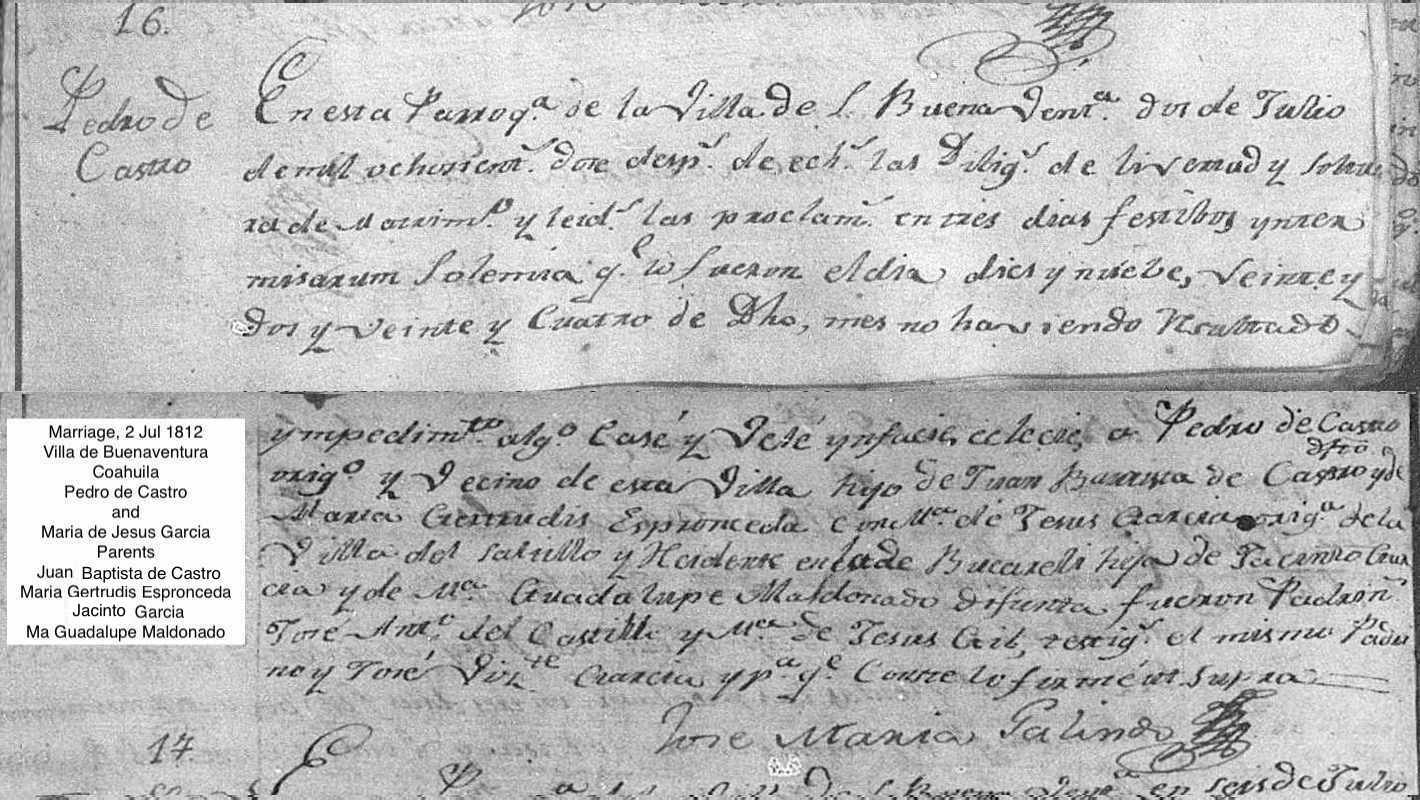 16.
Pedro de
Castro
En esta Parroq.ª de la Villa de S. Buena Vent.ª dos de Julio
de mil ochosient.s dose desp.s de ech.s las Dilig.s de livertad y soltu
ra de Matrim.º y leid.s las proclam.s en tres dias festibos ynter
misarum Solemnia q.e lo fueron el dia dies y nuebe, Veinte y
dos y veinte y Cuatro de Dho, mes no haviendo Resultado
ympedim.to alg.º Casé y Velé ynfacie, eclecie, a Pedro de Castro
orig.º y Vecino de esta Villa hijo de Juan Bautista de Castro dfto y de
Maria Gertrudis Espronceda con M.ª de Jesus Garcia orig.ª de la
Villa del Saltillo y Recidente en la de Bucareli hija de Jacinto Gar
cia y de M.ª Guadalupe Maldonado difunta fueron Padrin.s
José Ant.º del Castillo y M.ª de Jesus Gil, testig.s el mismo Padri
no y José Viz.te Garcia y p.ª q.e Conste lo firmé ut supra
Jose Maria Galindo
17.
de S. Buena Vent.ª en seis de Julio
Marriage, 2 Jul 1812
Villa de Buenaventura
Coahuila
Pedro de Castro
and
Maria de Jesus Garcia
Parents
Juan Baptista de Castro
Maria Gertrudis Espronceda
Jacinto Garcia
Ma Guadalupe Maldonado